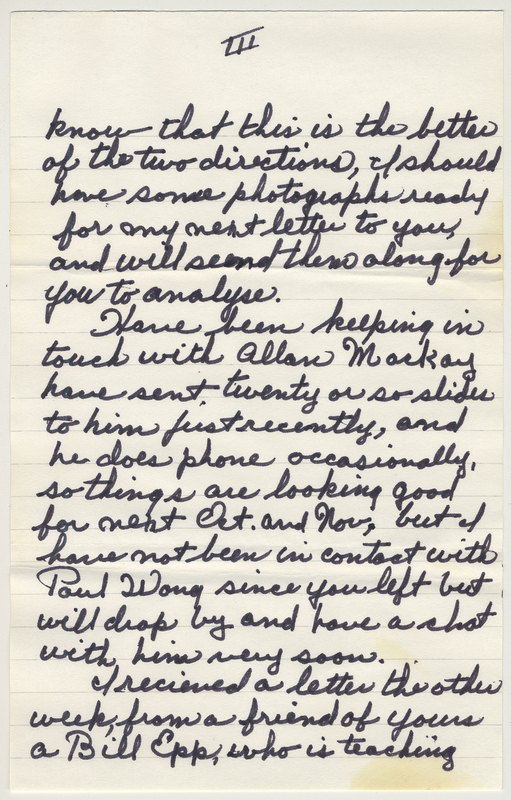 III
know that this is the better
of the two directions, I should
have some photographs ready
for my next letter to you,
and will seend them along for
you to analyse.
Have been keeping in
touch with Allan Mackay
have sent twenty or so slides
to him just recently, and
he does phone occasionally,
so things are looking good
for next Oct. and Nov, but I
have not been in contact with
Paul Wong since you left but
will drop by and have a chat
with him very soon.
I recieved a letter the other
week, from a friend of yours
a Bill Epp, who is teaching